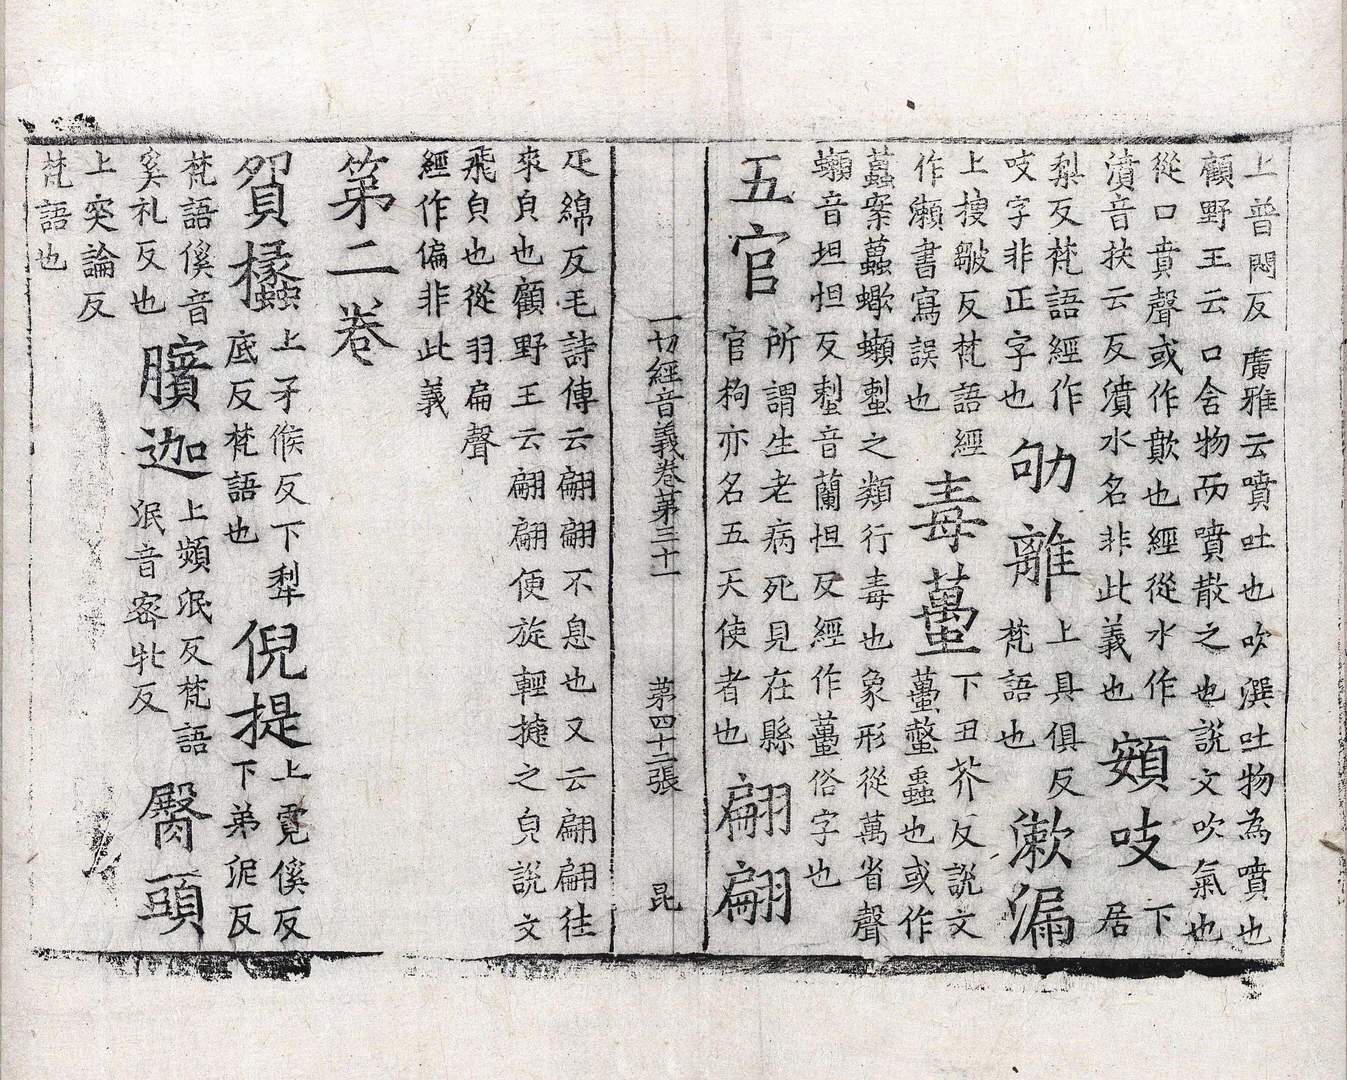 上普悶反廣雅云噴吐也吹潠吐物為噴也
顧野王云口含物而噴散之也說文吹氣也
從口賁聲或作歕也經從水作
濆音扶云反濆水名非此義也
頞吱
下居
梨反梵語經作
吱字非正字也
劬離
上具俱反
梵語也
漱漏
上搜皺反梵語經
作瀨書寫誤也
毒蠆
下丑芥反說文
蠆螫蟲也或作
蠚案蠆蠍蝲蜇之類行毒也象形從萬省聲
蝲音坦怛反蜇音蘭怛反經作蠆俗字也
五官
所謂生老病死見在縣
官拘亦名五天使者也
翩翩
疋綿反毛詩傳云翩翩不息也又云翩翩往
來皃也顧野王云翩翩便旋輕捷之皃說文
飛皃也從羽扁聲
經作偏非此義
第二卷
上矛候反下犁
底反梵語也
倪提
上霓傒反
下弟泥反
梵語傒音
奚礼反也
臏迦
上頻泯反梵語
泯音密牝反
臋頭
上突論反
梵語也
一切經音義卷第三十一 第四十二張 昆